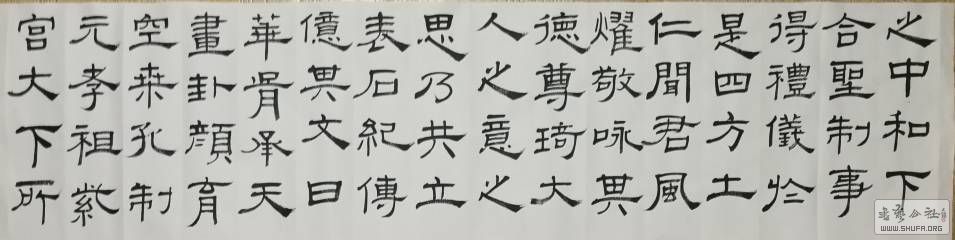 之中和下
合聖制事
得禮儀於
是四方土
仁聞君風
燿敬咏其
德尊琦大
人之意之
思乃共立
表石紀傳
億其文曰
華胥承天
畫卦顏育
空桑孔制
元孝祖紫
宮大下所
書法公社
WWW.SHUFA.ORG